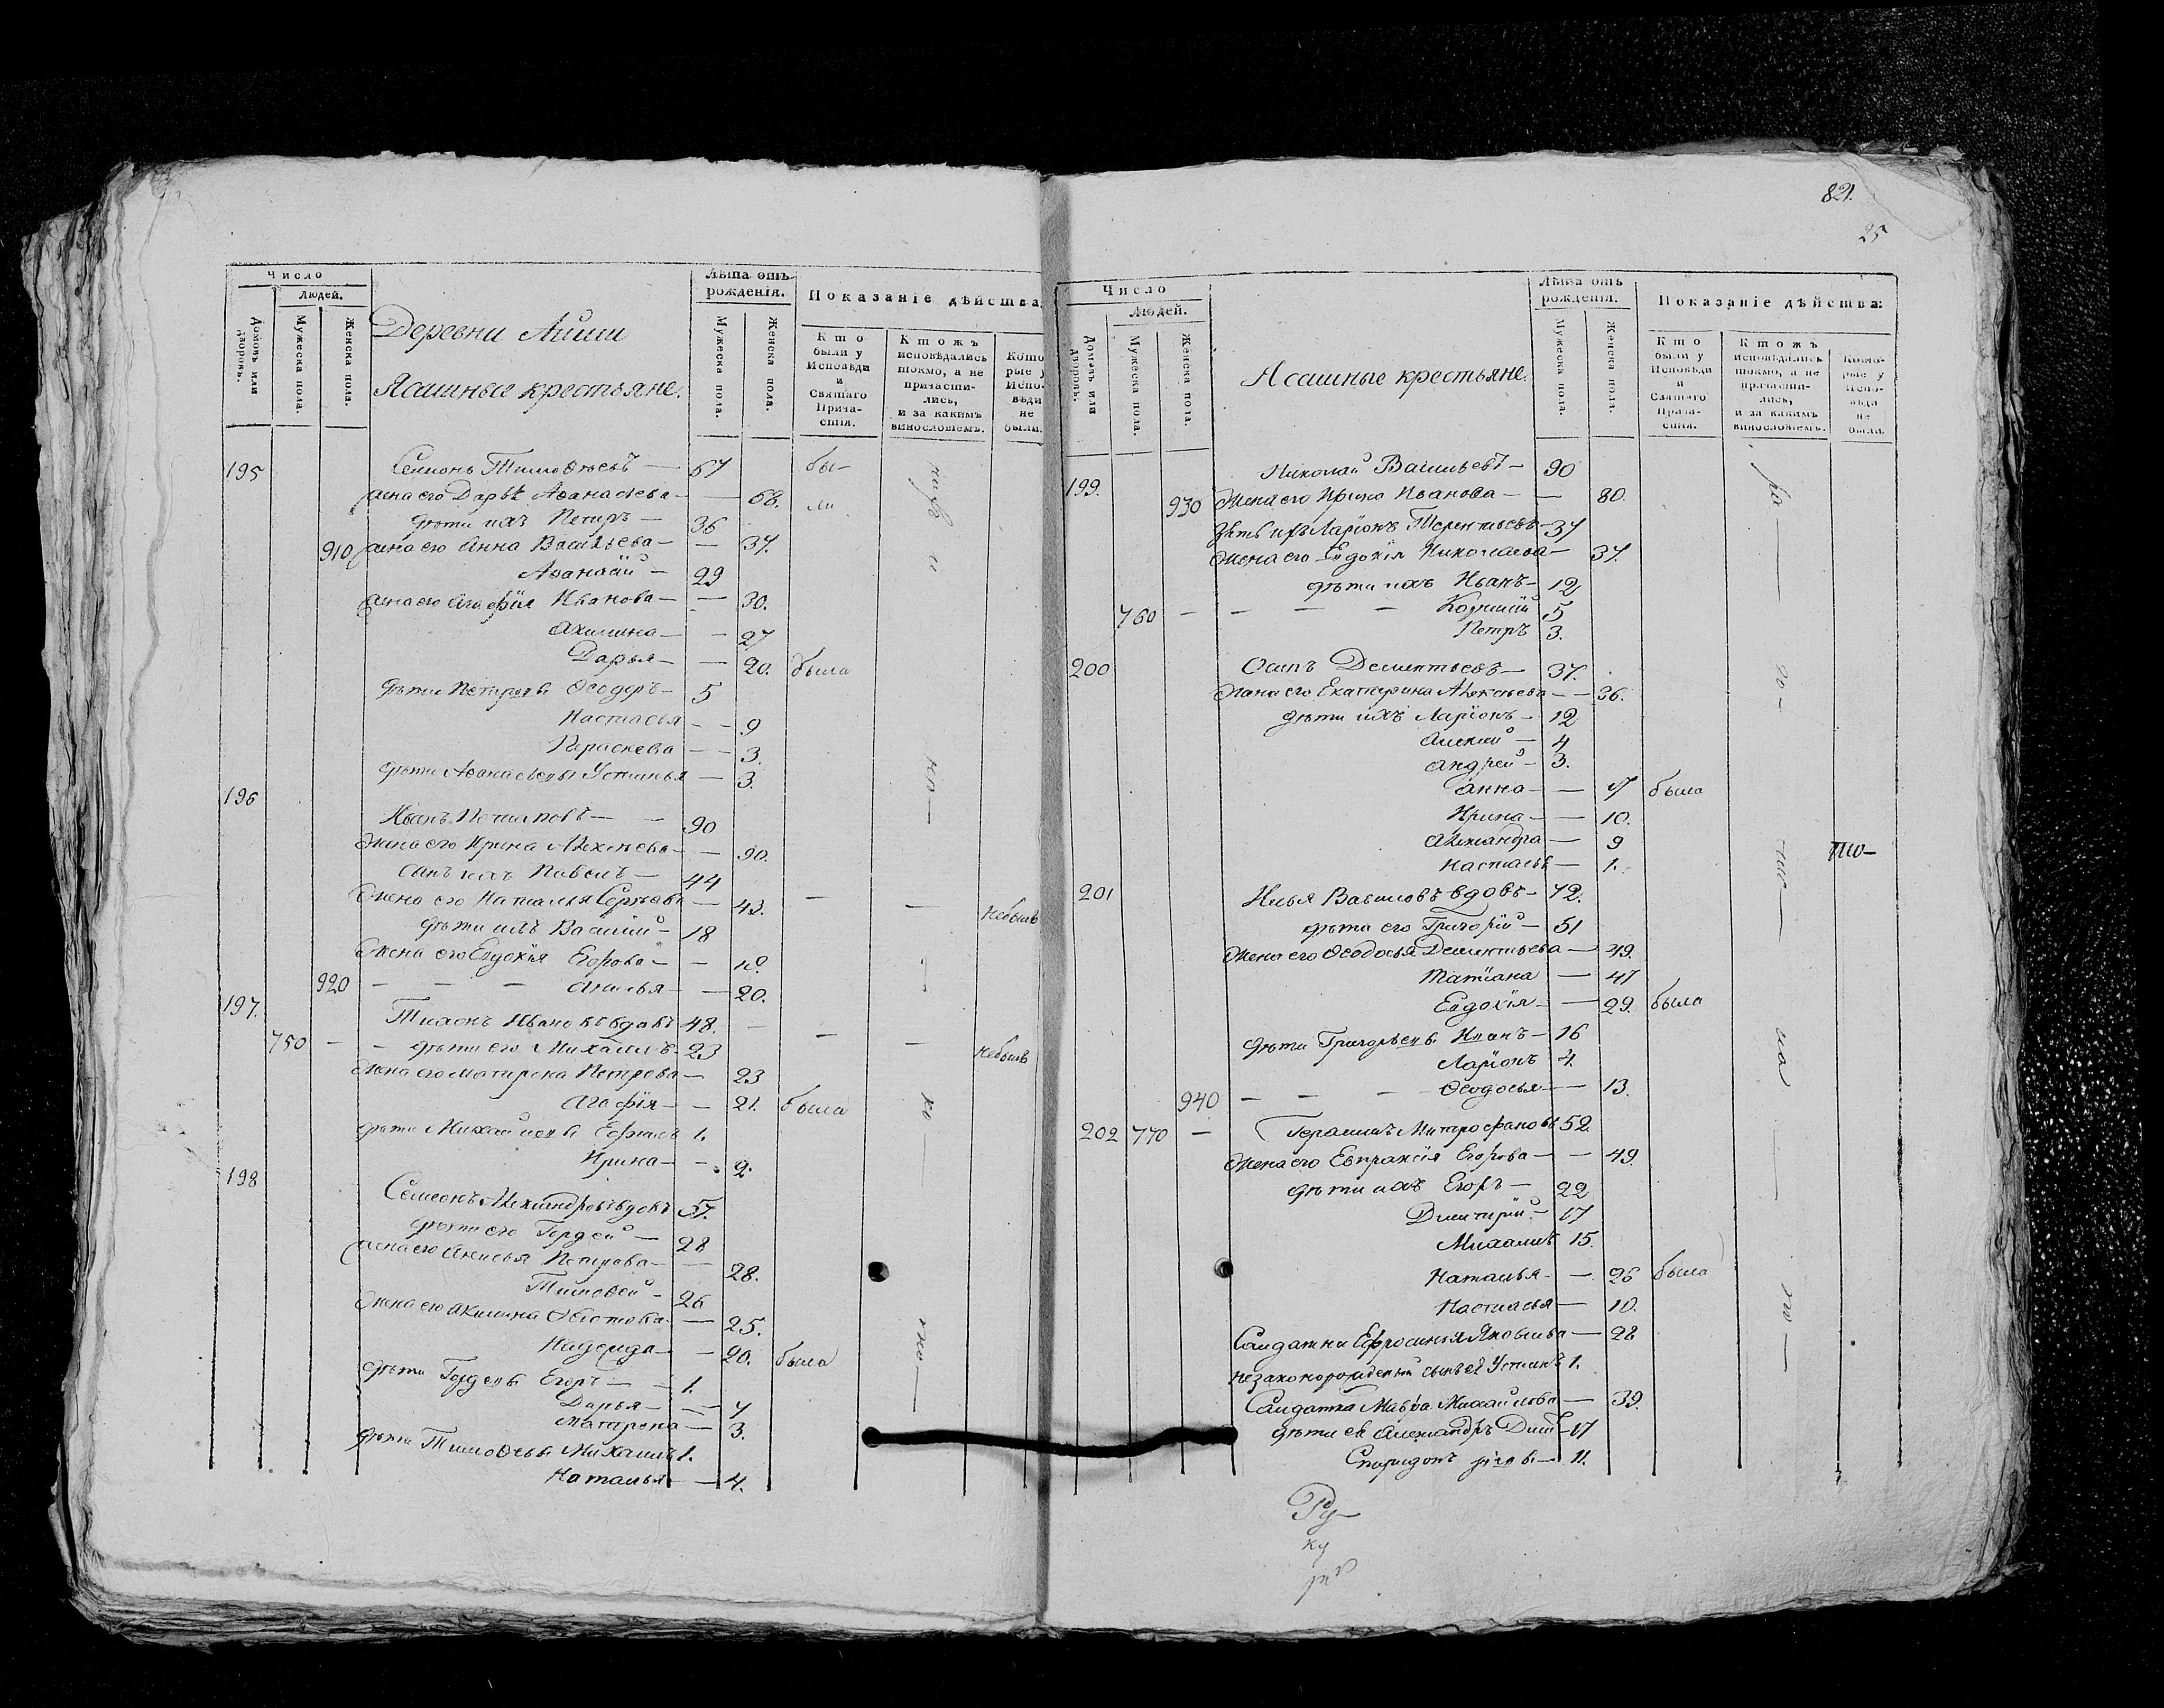 Число
Людей.
Домовъ или дворовъ.
Мужеска пола.
Женска пола.
Деревни Айши
Ясашные крестьяне.
Лѣта отъ рожденія.
Мужеска пола.
Женска пола.
Показаніе дѣйства
Кто были у Исповѣди и Святаго Прича-стія.
Ктожъ исповѣдались токмо, а не причасти-лись, и за какимъ винословіемъ.
Кото рые у Испо-вѣди не были.
195 Семионъ Тимоѳѣевъ — 67 бы-
жена его Дарья Аѳанасьева — — 68. ли
дѣти ихъ Петръ — 36
910 жена его Анна Васильева — — 37.
Аѳанасій — 29
жена его Агафія Иванова — — 30.
Акилина — — 27
Дарья — — 20. была
дѣти Петровы Ѳеодоръ — 5
Настасья — — 9
Параскева — — 3.
дѣти Аѳанасьевы Устинья — 3.
196
Иванъ Потаповъ — — 90
Жена его Ирина Алексѣева — — 90.
Сынъ ихъ Павелъ — 44
Жена его Наталья Сергѣева — 43. — — небылъ
дѣти ихъ Василій — 18
Жена его Евдокія Егорова — —
920 — — — Анисья — — 20.
197. Тихонъ Ивановъ вдовъ 48. —
750 — — дѣти его Михайлъ — 23 — — небылъ
Жена его Матрена Петрова — 23
Агафія — — 21. была
дѣти Михайловы Ефимъ 1.
Ирина — — 2.
198
Семеонъ Александровъ вдовъ 57.
дѣти его Гордей — 28
жена его Анисья Петрова — — 28.
Тимоѳей — 26
Жена его Акилина — 25.
Надежда — — 20. была
дѣти Гордеевы Егоръ — — 1.
Дарья — — 7
Матрена — 3.
дѣти Тимоѳеевы Михайлъ 1.
Наталья — — 4.
821.
25
Число
Людей.
Домовъ или дворовъ.
Мужеска пола.
Женска пола.
Ясашные крестьяне.
Лѣта отъ рожденія.
Мужеска пола.
Женска пола.
Показаніе дѣйства:
Кто были у Исповѣди и Святаго Прича-стія.
Ктожъ исповѣдались токмо, а не причасти-лись, и за какимъ винословіемъ.
Кото-рые у Испо-вѣди не были.
199. Николай Васильевъ — 90
930 Жена его Ирина Иванова — — 80.
Зять ихъ Ларіонъ Терентьевъ — 37
Жена его Евдокія Николаева — 37.
дѣти ихъ Иванъ — 12
760 — — — — Корнилій 5
Петръ 3.
200 Осипъ Дементьевъ — 37.
Жена его Екатерина Алексѣева — — 36.
дѣти ихъ Ларіонъ — 12
Алексій — 4
Андрей — 3.
Анна — — 17 была
Ирина — — 10.
Александра — 9
Настасья — 1.
201 Илья Вавиловъ вдовъ — 72.
дѣти его Григорій — 51
Жена его Ѳеодосья Дементьева — 49.
Татіана — 47
Евдокія — — 29. была
дѣти Григорьевы Иванъ — 16
Ларіонъ 4.
940 — — — Ѳеодосья — — 13.
202 770 — Герасимъ Митрофановъ 52.
Жена его Евпраксія Егорова — — 49.
дѣти ихъ Егоръ — 22
Димитрій — 17
Михайлъ 15.
Наталья — — 26 была
Настасья — 10.
Салдатка Ефросинья Яковлева — 28
незаконорожденный сынъ ея Устинъ 1.
Салдатка Мавра Михайлова — 39.
дѣти ея Александръ Дмит — 17
Спиридонъ ріевы — 11.
Ру-
ку